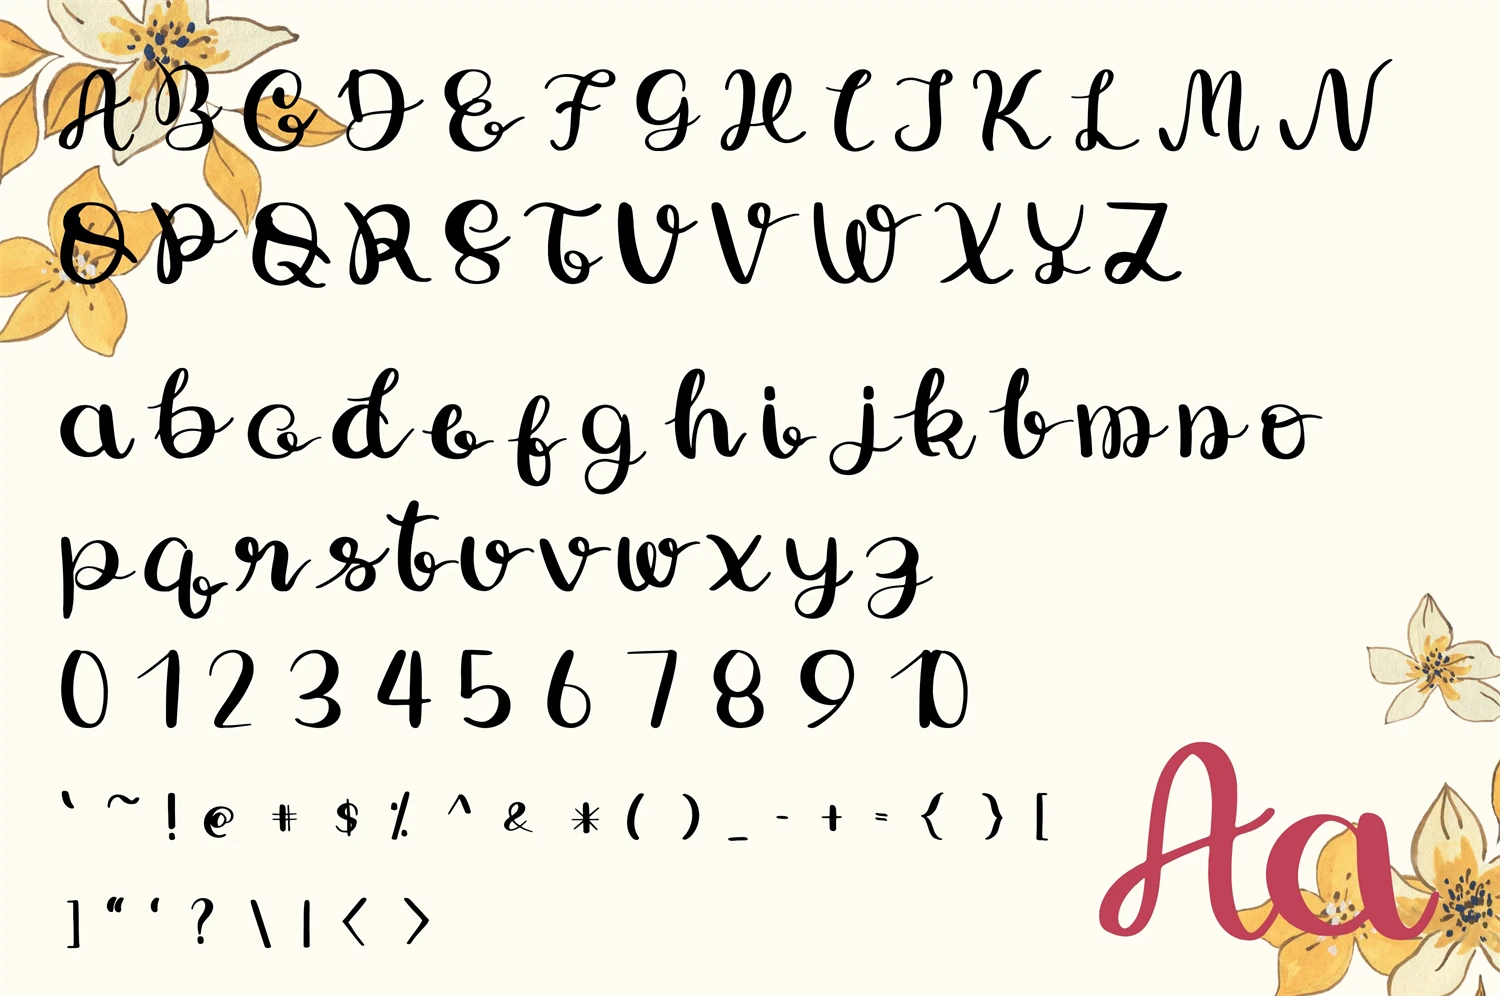 A B C D E F G H I J K L M N
O P Q R S T U V W X Y Z
a b c d e f g h i j k l m n o
p q r s t u v w x y z
0 1 2 3 4 5 6 7 8 9 10
` ~ ! @ # $ % ^ & * ( ) _ - + = { } [
] “ ‘ ? \ | < >
Aa